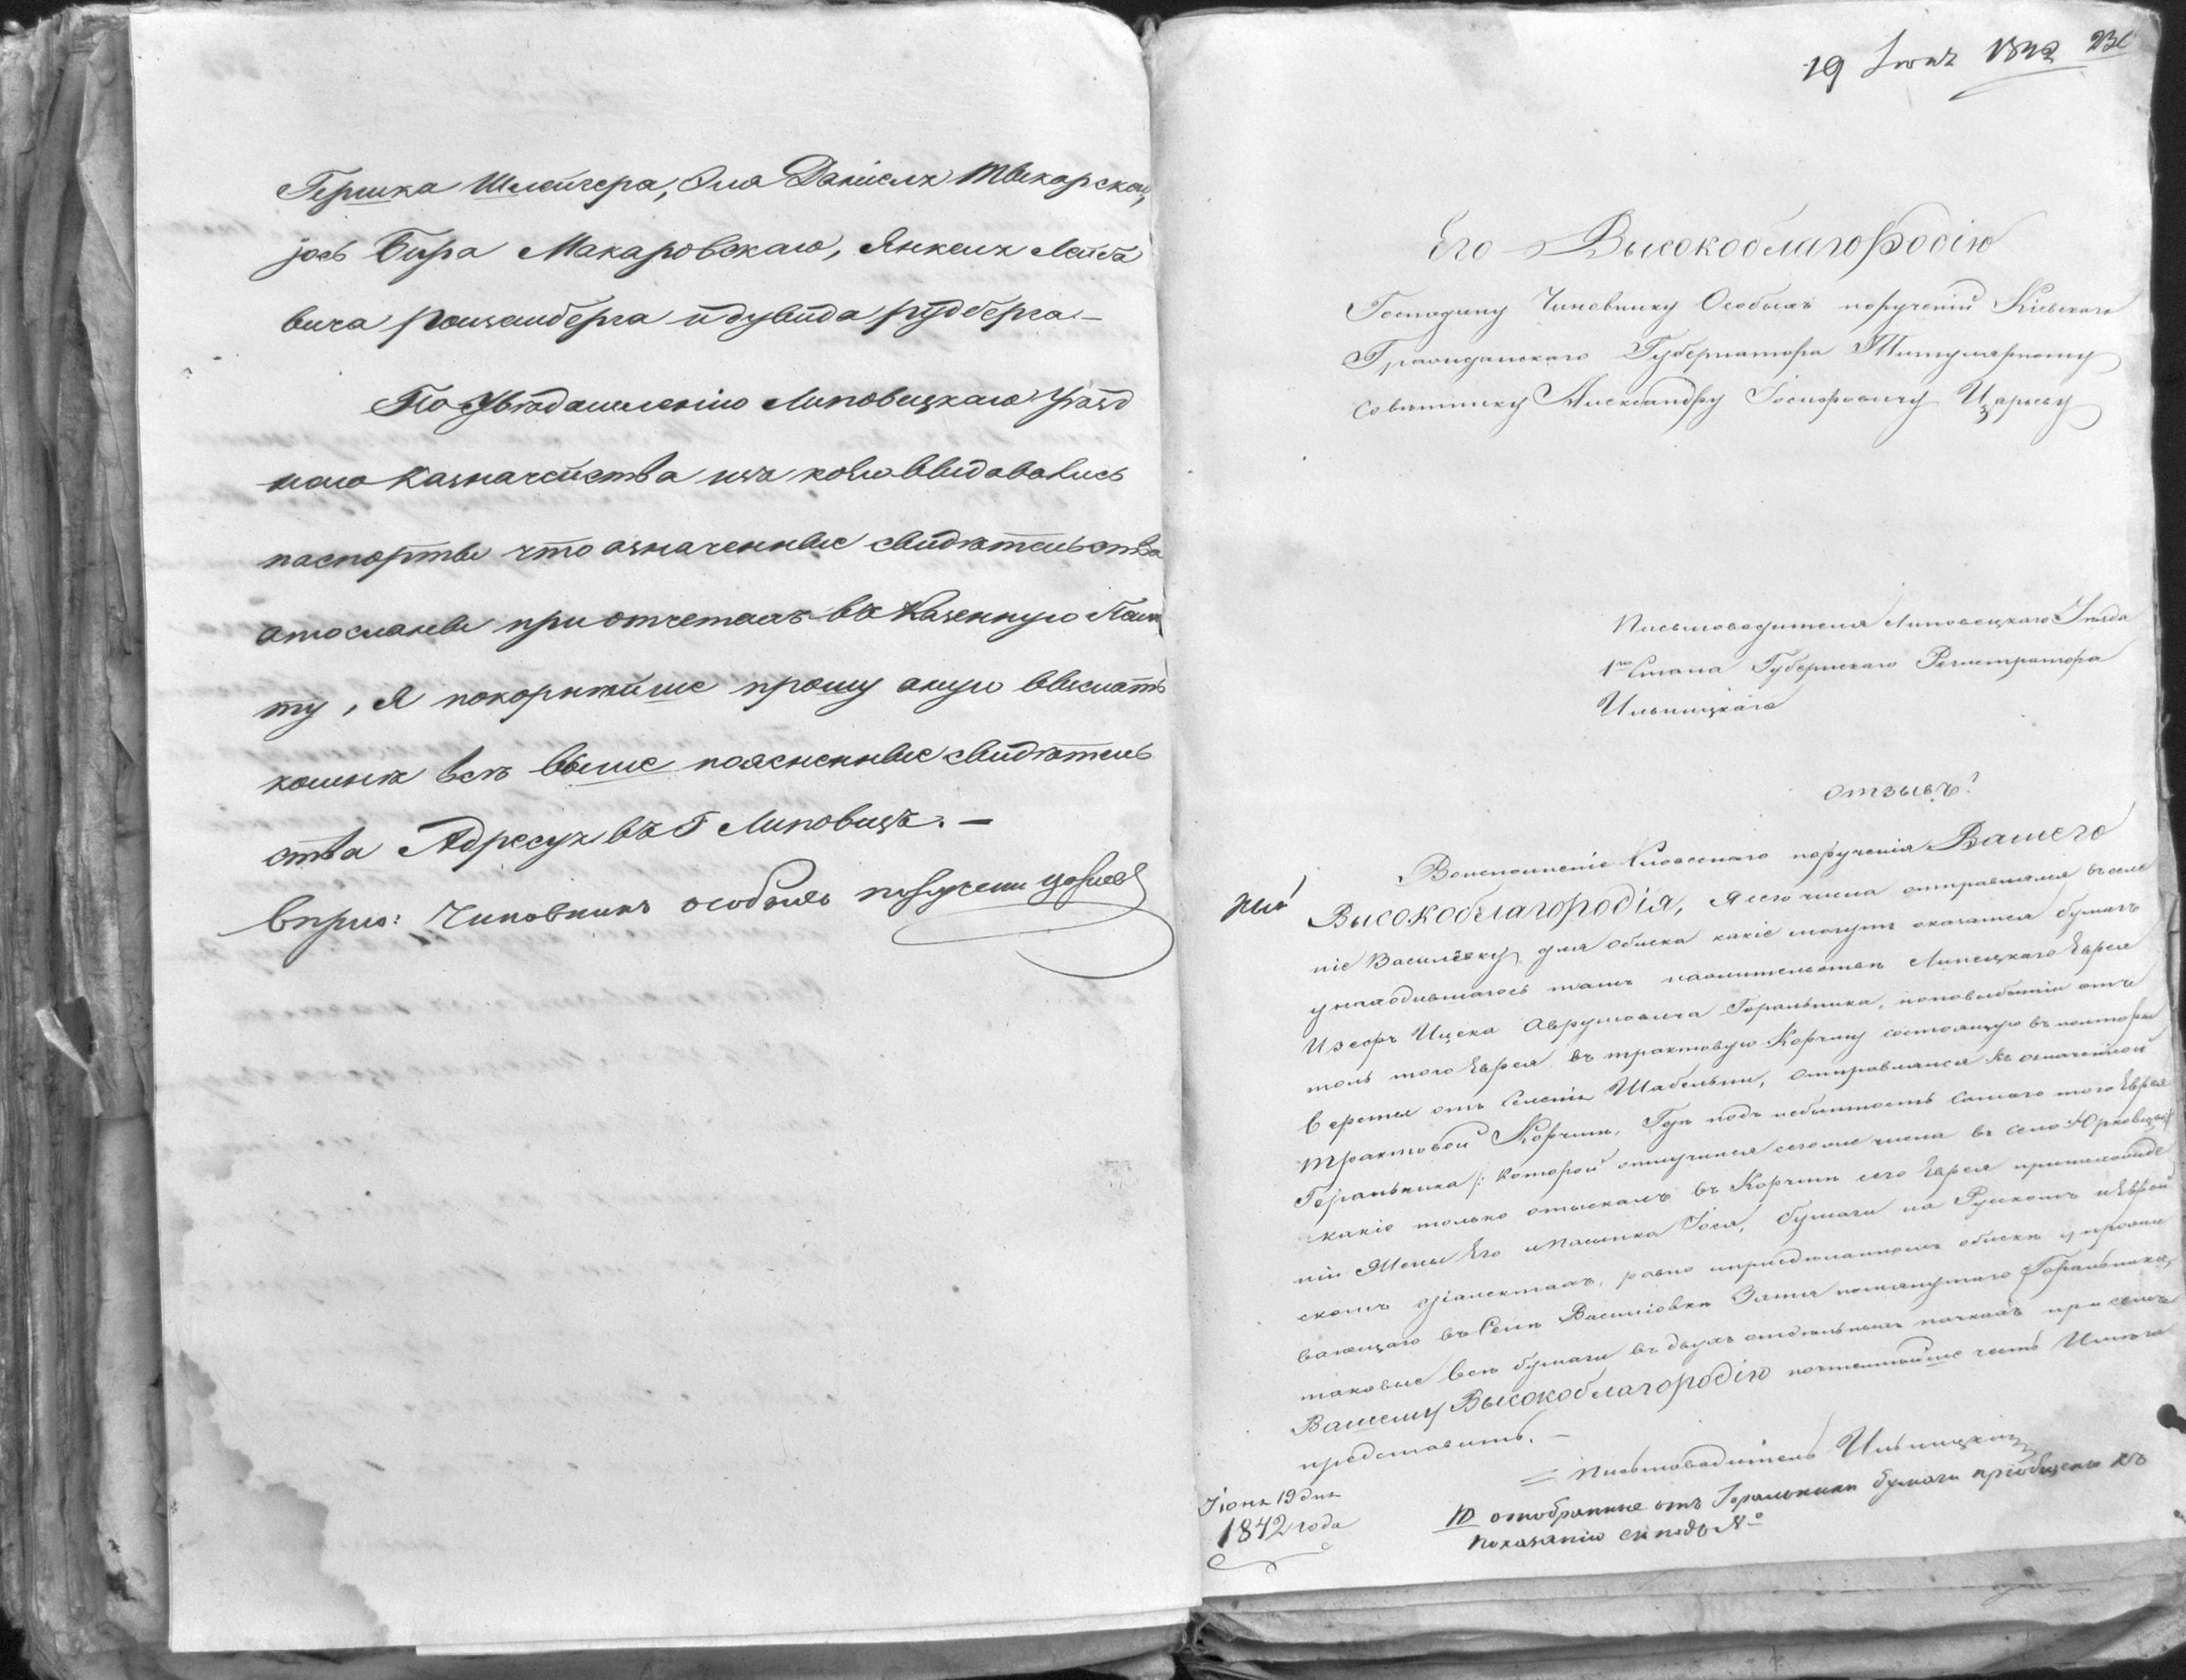 Гершка Шлейгера, Эля Даніеля Твекарскаго,
Іось Бера Макаровскаго, Янкеля Лейбо
вича и Дувида Рудберга. –
По Увѣдомленію Липовецкаго Уѣзд
наго Казначейства изъ коего выдавались
паспорты что означенные свидѣтельства
отосланы при отчетахъ въ Казенную Пала
ту, Я покорнѣйше прошу оную выслать
комнѣ всѣ выше поясненные свидѣтель
ства Адресуя въ Г Липовецъ. –
Вѣрно: Чиновникъ особыхъ порученій Царіевъ
19 Іюня 1842
Его Высокоблагородію
Господину Чиновнику Особыхъ порученій Кіевскаго
Гражданскаго Губернатора Титулярному
Совѣтнику Александру Іосифовичу Царіеву
Письмоводителя Липовецкаго Уѣзда
1го Стана Губернскаго Регистратора
Ильницкаго
Отзывъ:
Воисполненіе Словеснаго порученія Вашего
Высокоблагородія, Я сего числа отправлялся въ селе
ніе Василёвку для обыска какіе могутъ оказатся бумагъ
унаходившагося тамъ на жительствѣ Липецкаго Еврея
Ицека Аврумовича Горальника, но по выбытіи отъ
толь того Еврея въ трактовую Корчму состоящую въ полторы
версты отъ Селенія Шабельни, отправлялся къ означенной
трактовой Корчмѣ, Гдѣ подъ небытность самаго того Еврея
Горальника /: который отлучился сегоже числа въ село Юрковцы :/
какіе только отыскалъ въ Корчмѣ сего Еврея принахожде
ніи Жены Его и пасынка Іося, бумаги на Рускомъ и Еврей
скомъ діалектахъ, равно и присдѣланномъ обыскѣ упрожи
вающаго въ Селѣ Василіовкѣ Зятя помянутаго Горальника,
таковые всѣ бумаги въ двухъ отдѣльныхъ пачкахъ при семъ
Вашему Высокоблагородію почтеннѣйше честь Имѣю
представить. –
Письмоводитель Ильницкій
Іюня 19 дня
1842 года
отобранные отъ Горальника бумаги пріобщены къ
показанію его подъ №